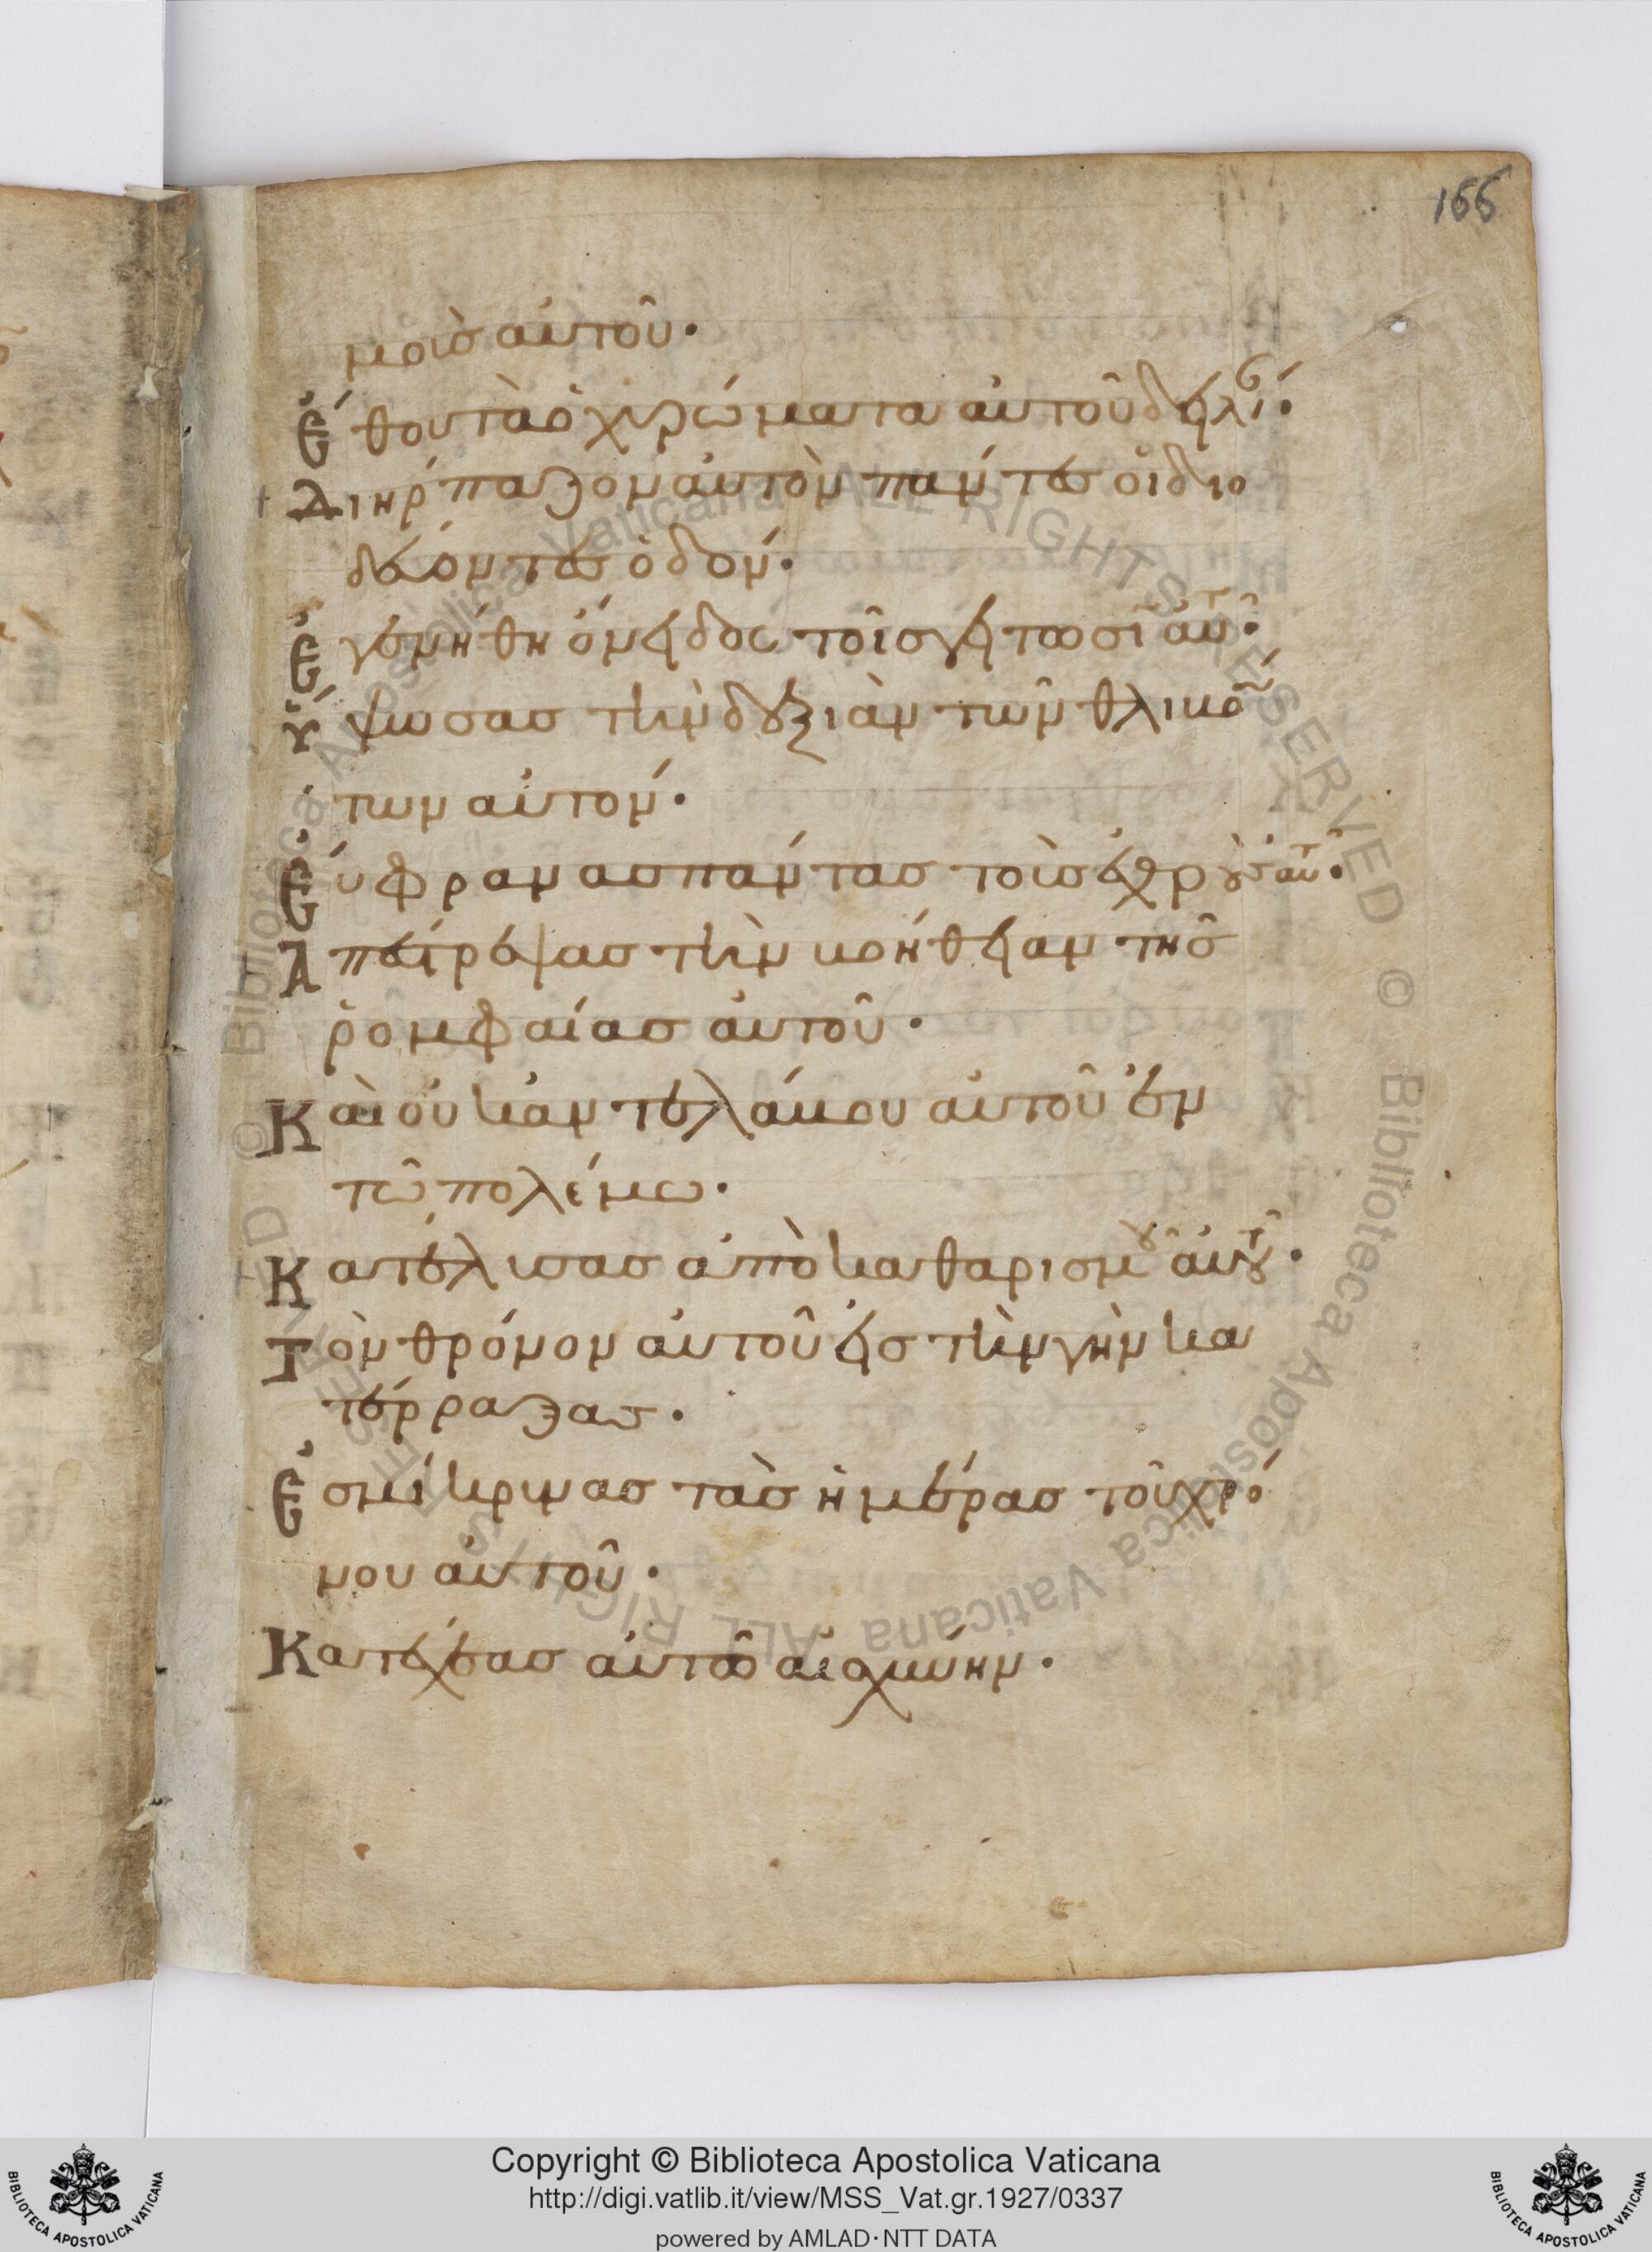 166
μοὺσ αὐτοῦ·
Ἔθου τὰ ὀχυρώματα αὐτοῦ δηλί·
Διηρπαζον αὐτὸν πάντεσ οἱ διο
δεύοντεσ ὁδόν·
Ἐγενήθη ὄνειδοσ τοῖσ γείτοσι αὐτ·
Ὕψωσασ τὴν δεξιὰν τῶν θλιβό
των αὐτόν·
Εὔφρανασ πάντασ τοὺσ ἐχθροὺσ αὐτ·
Ἀπέστρεψασ τὴν βοήθειαν τῆσ
ῥομφαίασ αὐτοῦ·
Καὶ οὐκ ἀντελάβου αὐτοῦ ἐν
τῶ πολέμω·
Κατέλυσασ ἀπὸ καθαρισμοῦ αὐτοῦ·
Τὸν θρόνον αὐτοῦ εἰσ τὴν γῆν κα
τέρραξασ·
Ἐσμίκρυνασ τὰσ ἡμέρασ τοῦ χρό
νου αὐτοῦ·
Κατέχεασ αὐτοῦ αἰσχύνην·
Copyright © Biblioteca Apostolica Vaticana
http://digi.vatlib.it/view/MSS_Vat.gr.1927/0337
powered by AMLAD·NTT DATA
BIBLIOTECA APOSTOLICA VATICANA
BIBLIOTECA APOSTOLICA VATICANA